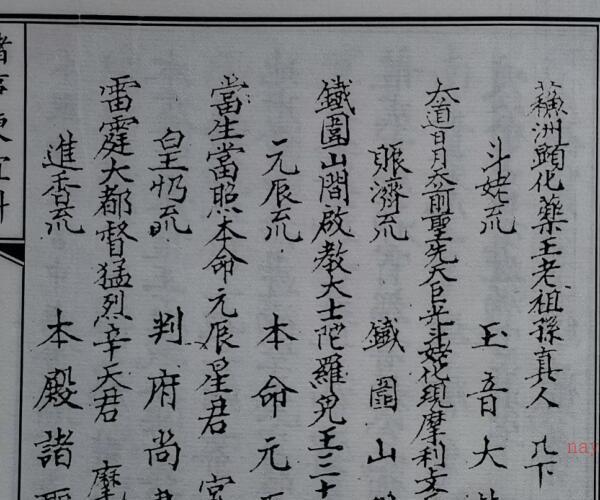 蘓洲顕化藥王老祖孫真人 几下
斗姥流 玉音大
大道日月 前聖先天巨光斗姥化現摩利支
賬濟流 鐵圍山
鐵圍山間啟教大士陀羅兒王三十
元辰流 本命元
當生當照本命元辰星君 宫
皇 流 判府尚
雷霆大都督猛烈辛天君 摩
進香流 本殿諸聖
諸 便宜科
nay